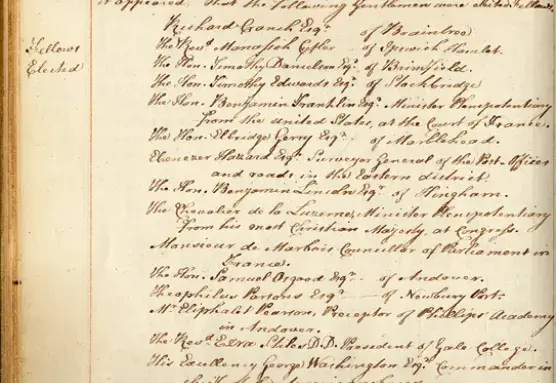 it appeared, that the following Gentlemen were elected Fellows
Fellows
Elected
Richard Cranch Esqr. of Braintree
The Revd. Manasseh Cutler of Ipswich Hamlet.
The Hon. Timothy Danielson Esqr. of Brimfield.
The Hon. Timothy Edwards Esqr. of Stockbridge
The Hon. Benjamin Franklin Esqr. Minister Plenipotentiary
from the United States, at the Court of France.
The Hon. Elbridge Gerry Esqr. of Marblehead.
Ebenezer Hazard Esqr. Surveyor General of the Post-Offices
and roads in the Eastern district.
The Hon. Benjamin Lincoln Esqr. of Hingham.
The Chevalier de la Luzerne, Minister Plenipotentiary
from his most Christian Majesty, at Congress.
Monsieur de Marbois Councillor of Parliament in
France.
The Hon. Samuel Osgood Esqr. of Andover.
Theophilus Parsons Esqr. of Newbury Port.
Mr. Eliphalet Pearson, Preceptor of Phillips' Academy
in Andover.
The Revd. Ezra Stiles D.D. President of Yale College.
His Excellency George Washington Esqr. Commander in